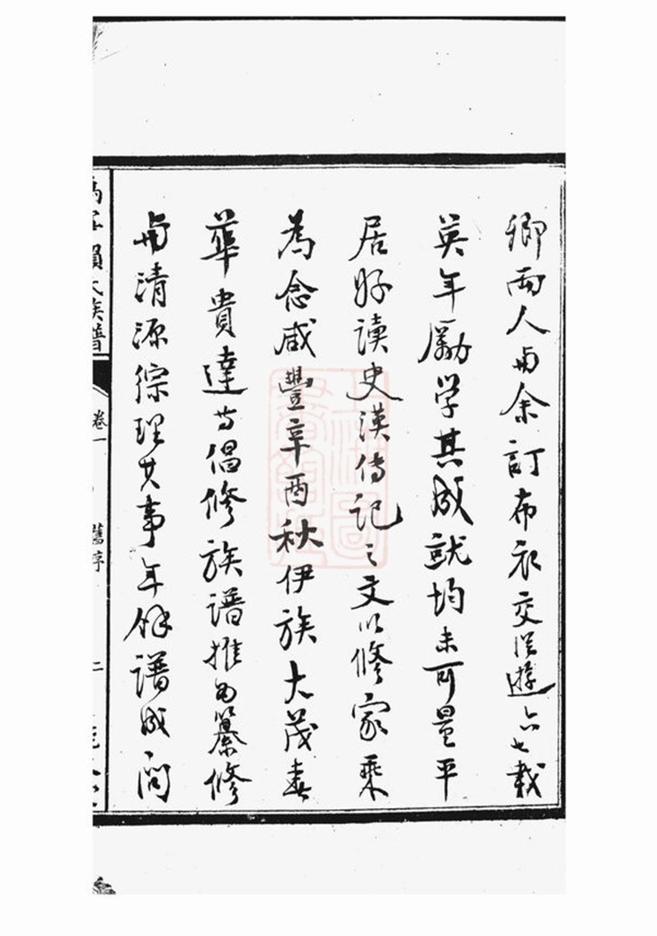 卿兩人與余訂布衣交從遊六七載
英年勵学其成就均未可量平
居好讀史漢傳記之文以修家乘
為念咸豐辛酉秋伊族大茂春
華貴達等倡修族譜推為纂修
與清源綜理其事年餘譜成問
賴氏族譜
卷一
舊序
二